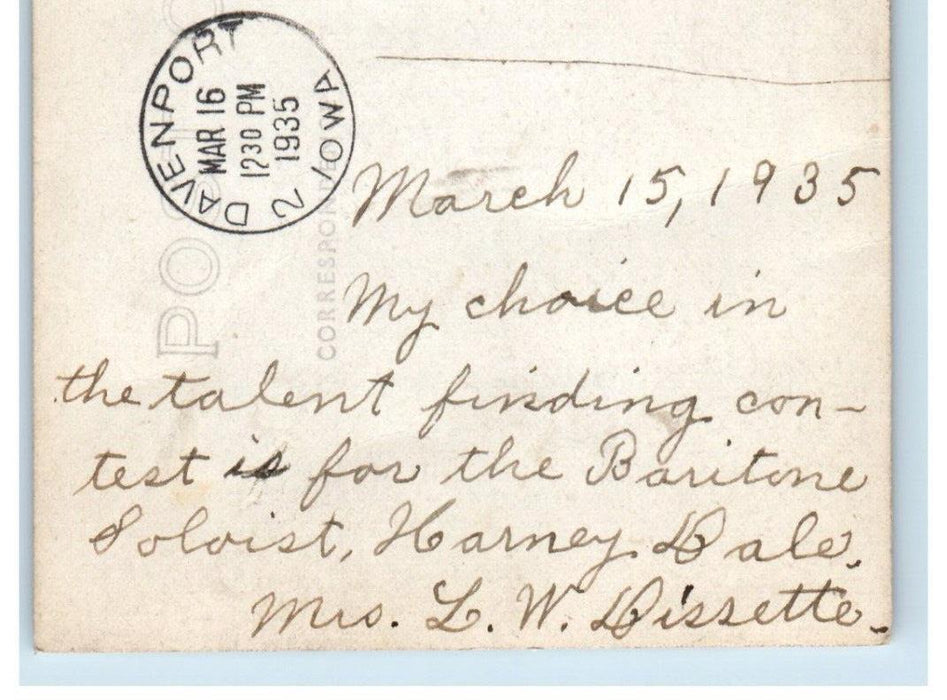 DAVENPORT
MAR 16
1230 PM
1935
IOWA
2
PO
CORRESPON
March 15, 1935
My choice in
the talent finding con-
test is for the Baritone
Soloist, Harney Dale.
Mrs. L. W. Dissette.